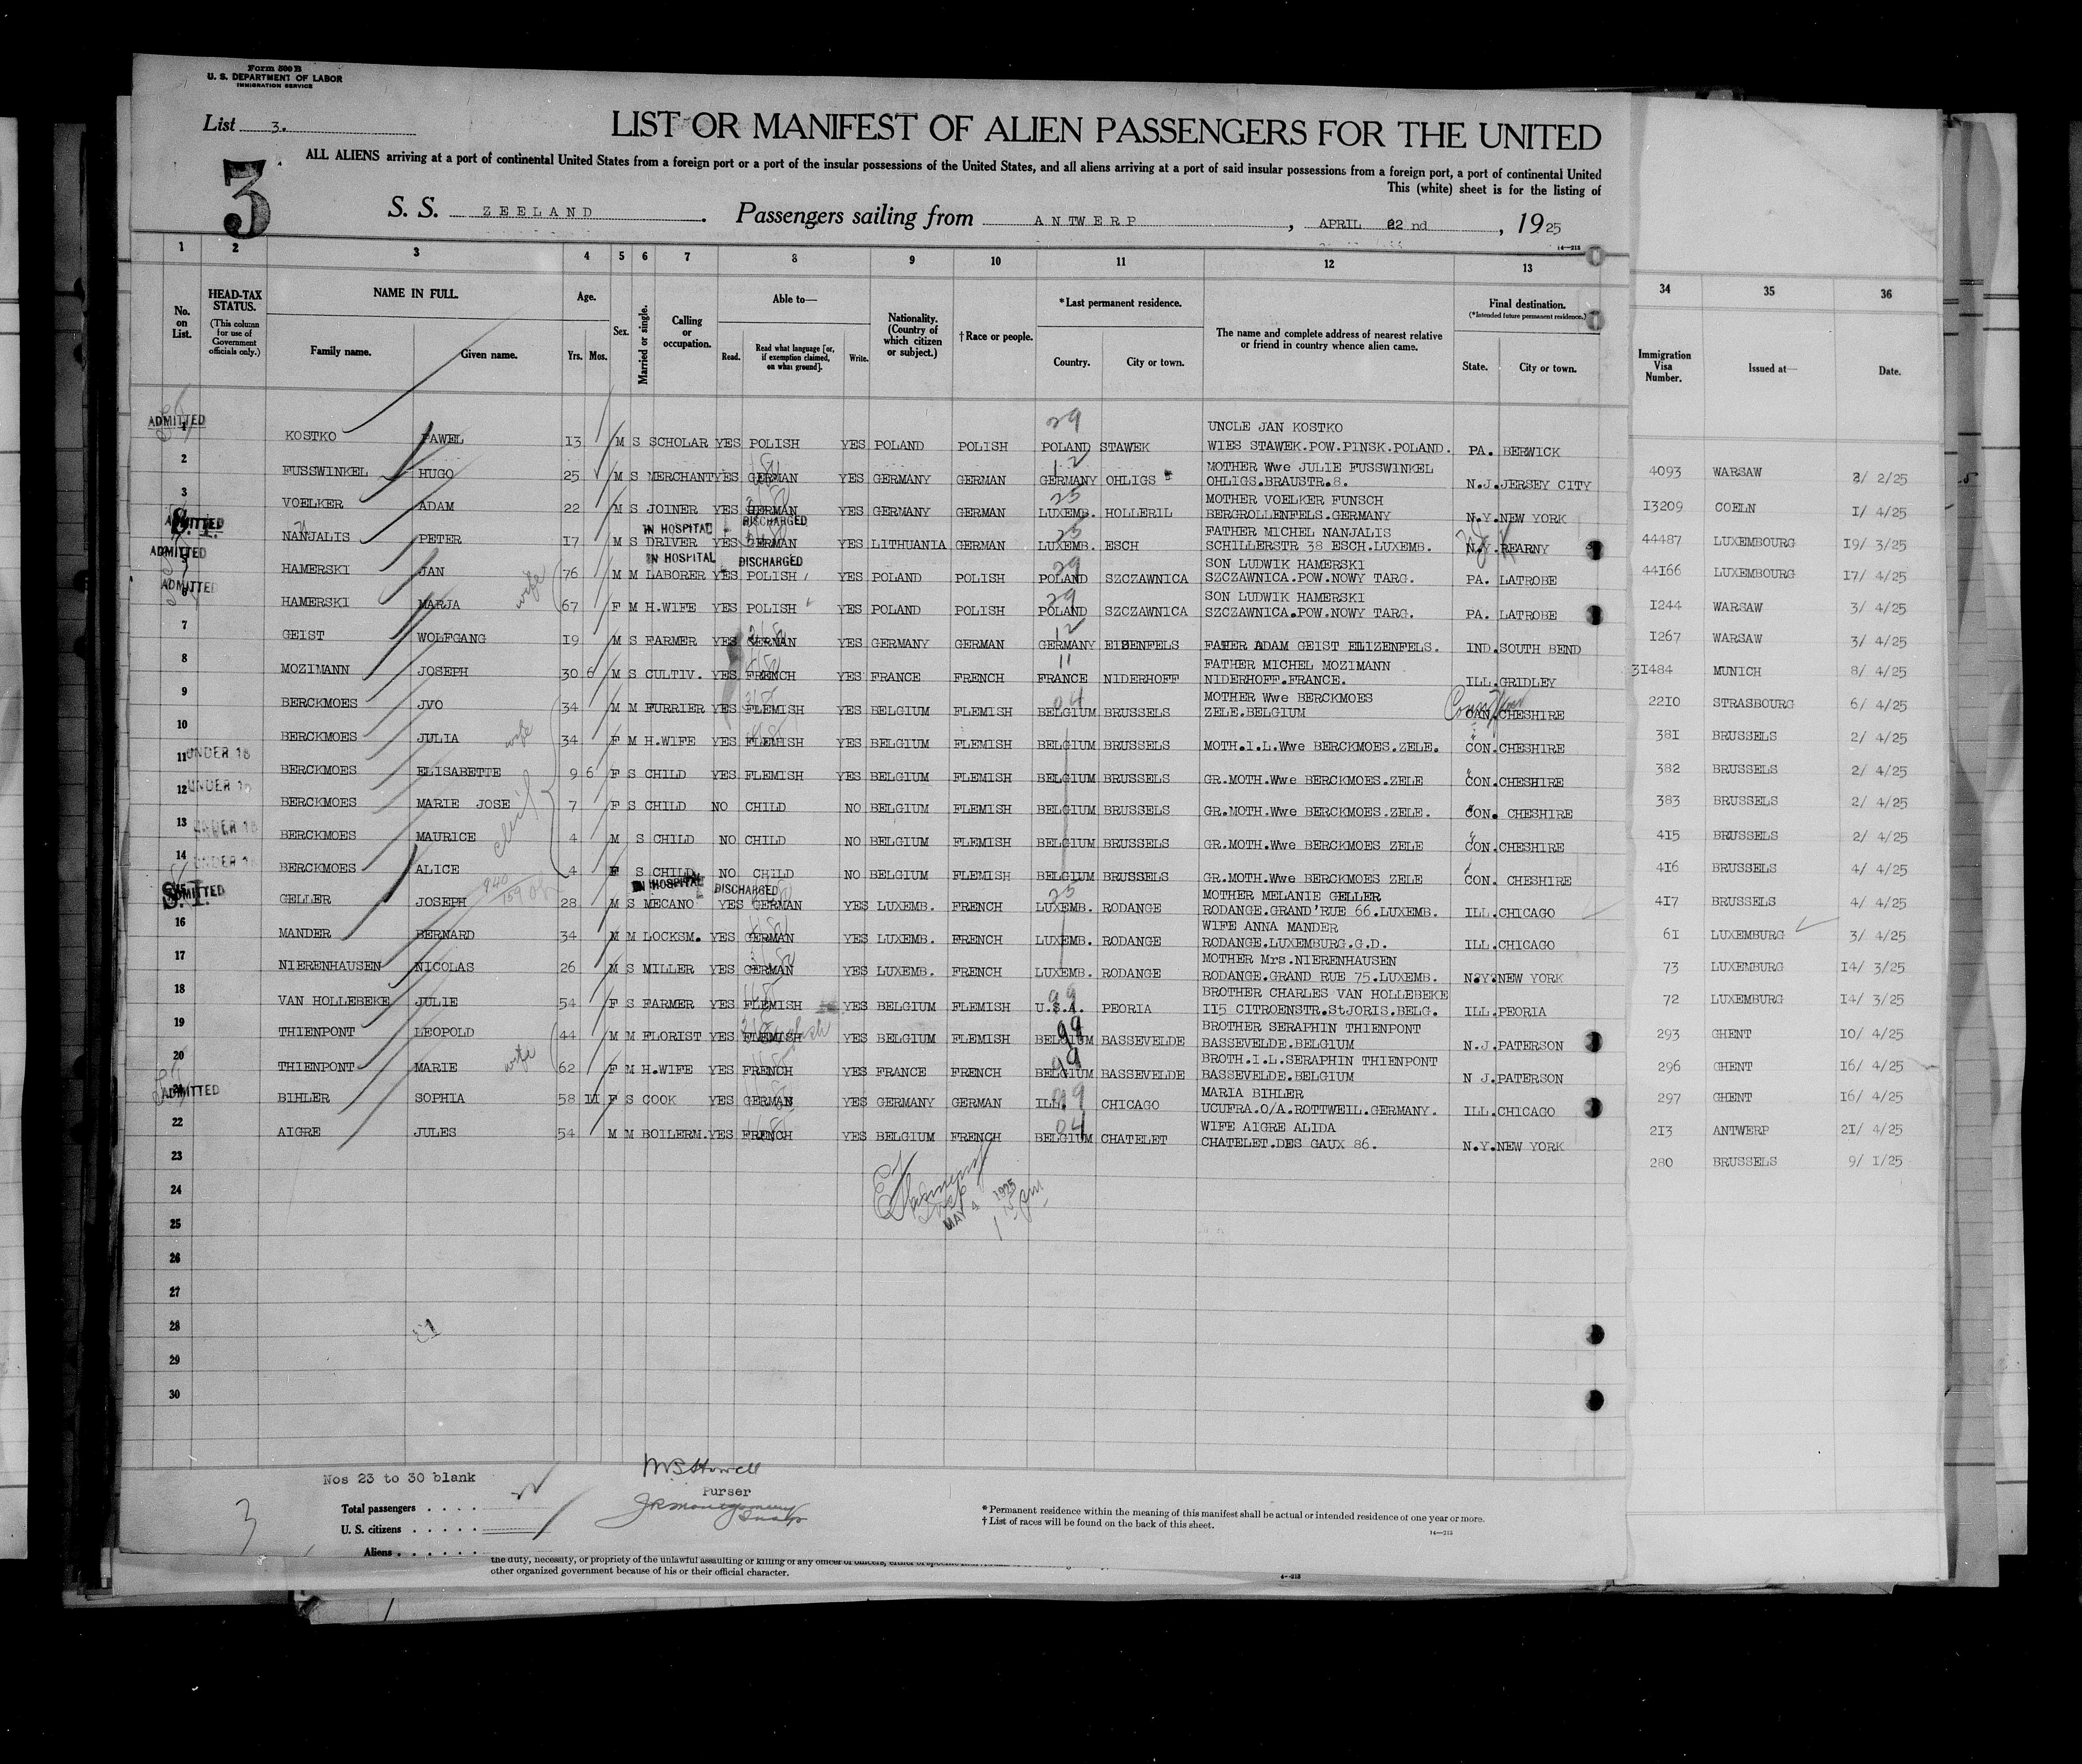 Form 500 B
U. S. DEPARTMENT OF LABOR
IMMIGRATION SERVICE
List 3.
3
LIST OR MANIFEST OF ALIEN PASSENGERS FOR THE UNITED
ALL ALIENS arriving at a port of continental United States from a foreign port or a port of the insular possessions of the United States, and all aliens arriving at a port of said insular possessions from a foreign port, a port of continental United
This (white) sheet is for the listing of
S. S. ZEELAND. Passengers sailing from ANTWERP, APRIL 22 nd, 1925
14—213
1 2 3 4 5 6 7 8 9 10 11 12 13 34 35 36
No. on List.
HEAD-TAX STATUS.
(This column for use of Government officials only.)
NAME IN FULL.
Family name. Given name.
Age.
Yrs. Mos.
Sex.
Married or single.
Calling or occupation.
Able to—
Read. Read what language [or, if exemption claimed, on what ground]. Write.
Nationality. (Country of which citizen or subject.)
†Race or people.
*Last permanent residence.
Country. City or town.
The name and complete address of nearest relative or friend in country whence alien came.
Final destination.
(*Intended future permanent residence.)
State. City or town.
Immigration Visa Number.
Issued at—
Date.
ADMITTED 29 UNCLE JAN KOSTKO
1 KOSTKO PAWEL 13 M S SCHOLAR YES POLISH YES POLAND POLISH POLAND STAWEK WIES STAWEK.POW.PINSK.POLAND. PA. BERWICK 4093 WARSAW 2/ 2/25
12 MOTHER Wwe JULIE FUSSWINKEL
2 FUSSWINKEL HUGO 25 M S MERCHANT YES GERMAN YES GERMANY GERMAN GERMANY OHLIGS OHLIGS.BRAUSTR.8. N.J. JERSEY CITY 13209 COELN 1/ 4/25
25 MOTHER VOELKER FUNSCH
3 VOELKER ADAM 22 M S JOINER YES GERMAN YES GERMANY GERMAN LUXEMB. HOLLERIL BERGROLLENFELS.GERMANY N.Y. NEW YORK 44487 LUXEMBOURG 19/ 3/25
ADMITTED IN HOSPITAL DISCHARGED 25 FATHER MICHEL NANJALIS
4 NANJALIS PETER 17 M S DRIVER YES GERMAN YES LITHUANIA GERMAN LUXEMB. ESCH SCHILLERSTR 38 ESCH.LUXEMB. N.Y. REARNY 44166 LUXEMBOURG 17/ 4/25
ADMITTED IN HOSPITAL DISCHARGED 29 SON LUDWIK HAMERSKI
5 HAMERSKI JAN 76 M M LABORER YES POLISH YES POLAND POLISH POLAND SZCZAWNICA SZCZAWNICA.POW.NOWY TARG. PA. LATROBE 1244 WARSAW 3/ 4/25
ADMITTED wife 29 SON LUDWIK HAMERSKI
6 HAMERSKI MARJA 67 F M H.WIFE YES POLISH YES POLAND POLISH POLAND SZCZAWNICA SZCZAWNICA.POW.NOWY TARG. PA. LATROBE 1267 WARSAW 3/ 4/25
12
7 GEIST WOLFGANG 19 M S FARMER YES GERMAN YES GERMANY GERMAN GERMANY EISENFELS FATHER ADAM GEIST ELIZENFELS. IND. SOUTH BEND 31484 MUNICH 8/ 4/25
11 FATHER MICHEL MOZIMANN
8 MOZIMANN JOSEPH 30 6 M S CULTIV. YES FRENCH YES FRANCE FRENCH FRANCE NIDERHOFF NIDERHOFF.FRANCE. ILL. GRIDLEY 2210 STRASBOURG 6/ 4/25
04 MOTHER Wwe BERCKMOES
9 BERCKMOES JVO 34 M M FURRIER YES FLEMISH YES BELGIUM FLEMISH BELGIUM BRUSSELS ZELE.BELGIUM CAN. CHESHIRE 381 BRUSSELS 2/ 4/25
10 BERCKMOES JULIA wife 34 F M H.WIFE YES FLEMISH YES BELGIUM FLEMISH BELGIUM BRUSSELS MOTH.I.L.Wwe BERCKMOES.ZELE. CON. CHESHIRE 382 BRUSSELS 2/ 4/25
11 UNDER 16 BERCKMOES ELISABETTE 9 6 F S CHILD YES FLEMISH YES BELGIUM FLEMISH BELGIUM BRUSSELS GR.MOTH.Wwe BERCKMOES.ZELE CON. CHESHIRE 383 BRUSSELS 2/ 4/25
12 UNDER 16 BERCKMOES MARIE JOSE 7 F S CHILD NO CHILD NO BELGIUM FLEMISH BELGIUM BRUSSELS GR.MOTH.Wwe BERCKMOES.ZELE. CON. CHESHIRE 415 BRUSSELS 2/ 4/25
13 UNDER 16 BERCKMOES MAURICE 4 M S CHILD NO CHILD NO BELGIUM FLEMISH BELGIUM BRUSSELS GR.MOTH.Wwe BERCKMOES ZELE CON. CHESHIRE 416 BRUSSELS 4/ 4/25
14 UNDER 16 BERCKMOES ALICE 4 F S CHILD NO CHILD NO BELGIUM FLEMISH BELGIUM BRUSSELS GR.MOTH.Wwe BERCKMOES ZELE CON. CHESHIRE 417 BRUSSELS 4/ 4/25
S.I. ADMITTED IN HOSPITAL DISCHARGED 25 MOTHER MELANIE GELLER
GELLER JOSEPH 28 M S MECANO YES GERMAN YES LUXEMB. FRENCH LUXEMB. RODANGE RODANGE.GRAND'RUE 66.LUXEMB. ILL. CHICAGO 61 LUXEMBURG 3/ 4/25
WIFE ANNA MANDER
16 MANDER BERNARD 34 M M LOCKSM. YES GERMAN YES LUXEMB. FRENCH LUXEMB. RODANGE RODANGE.LUXEMBURG.G.D. ILL. CHICAGO 73 LUXEMBURG 14/ 3/25
MOTHER Mrs.NIERENHAUSEN
17 NIERENHAUSEN NICOLAS 26 M S MILLER YES GERMAN YES LUXEMB. FRENCH LUXEMB. RODANGE RODANGE.GRAND RUE 75.LUXEMB. N.Y. NEW YORK 72 LUXEMBURG 14/ 3/25
99 BROTHER CHARLES VAN HOLLEBEKE
18 VAN HOLLEBEKE JULIE 54 F S FARMER YES FLEMISH YES BELGIUM FLEMISH U.S.A. PEORIA 115 CITROENSTR.StJORIS.BELG. ILL. PEORIA 293 GHENT 10/ 4/25
99 BROTHER SERAPHIN THIENPONT
19 THIENPONT LEOPOLD 44 M M FLORIST YES FLEMISH YES BELGIUM FLEMISH BELGIUM BASSEVELDE BASSEVELDE.BELGIUM N.J. PATERSON 296 GHENT 16/ 4/25
wife 99 BROTH.I.L.SERAPHIN THIENPONT
20 THIENPONT MARIE 62 F M H.WIFE YES FRENCH YES FRANCE FRENCH BELGIUM BASSEVELDE BASSEVELDE.BELGIUM N J. PATERSON 297 GHENT 16/ 4/25
ADMITTED 99 MARIA BIHLER
21 BIHLER SOPHIA 58 11 F S COOK YES GERMAN YES GERMANY GERMAN ILL. CHICAGO UCUFRA.O/A.ROTTWEIL.GERMANY. ILL. CHICAGO 213 ANTWERP 21/ 4/25
04 WIFE AIGRE ALIDA
22 AIGRE JULES 54 M M BOILERM. YES FRENCH YES BELGIUM FRENCH BELGIUM CHATELET CHATELET.DES GAUX 86. N.Y. NEW YORK 280 BRUSSELS 9/ 1/25
23
24
MAY 4 1925
25
26
27
28
29
30
Nos 23 to 30 blank
Purser
Total passengers
U. S. citizens
Aliens
3
* Permanent residence within the meaning of this manifest shall be actual or intended residence of one year or more.
† List of races will be found on the back of this sheet.
14—213
the duty, necessity, or propriety of the unlawful assaulting or killing of any officer or officers, either of
other organized government because of his or their official character.